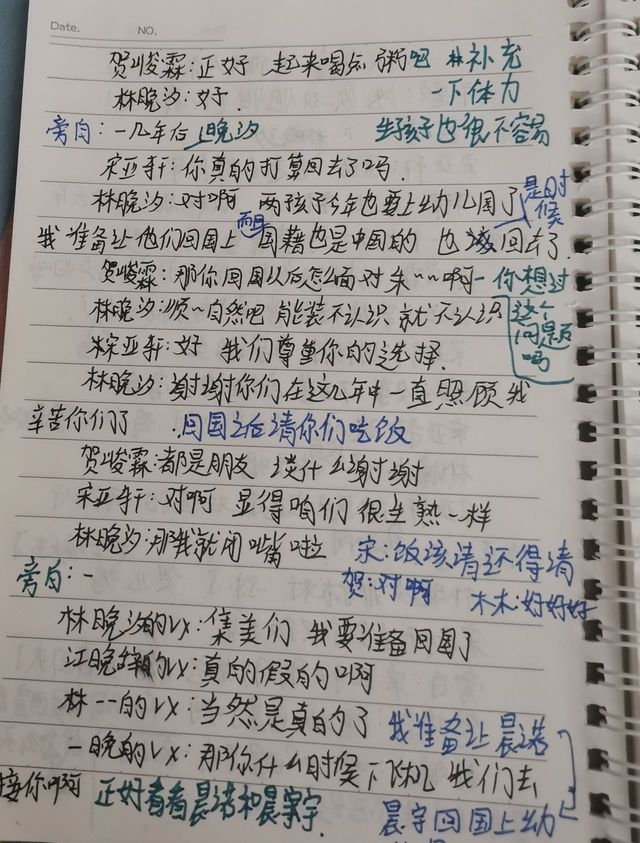 Date.
NO.
贺峻霖:正好 起来喝点粥吧 补充
林晚汐:好. 一下体力
生孩子也很不容易
旁白:一几年后 晚汐
宋亚轩:你真的打算回去了吗.
林晚汐:对啊 两孩子今年也要上幼儿园了 是时候
我准备让他们回国上 而且 国籍也是中国的 也该回去了.
贺峻霖:那你回国以后怎么面对朱~~啊 你想过
林晚汐:顺~自然吧 能装不认识 就不认识 这个
问题
宋亚轩:好 我们尊重你的选择. 吗
林晚汐:谢谢你们在这几年中一直照顾我
辛苦你们了 .回国之后请你们吃饭
贺峻霖:都是朋友 谈什么谢谢
宋亚轩:对啊 显得咱们很生熟一样
林晚汐:那我就闭嘴啦 宋:饭该请还得请
旁白:一 贺:对啊 木木:好好好
林晚汐的vx:集美们 我要准备回国了
江晚 的vx:真的假的啊
林一一的vx:当然是真的了 我准备让晨浩
一晚的vx:那你什么时候下飞机 我们去
接你啊 正好看看晨浩和晨宇宇. 晨宇回国上幼